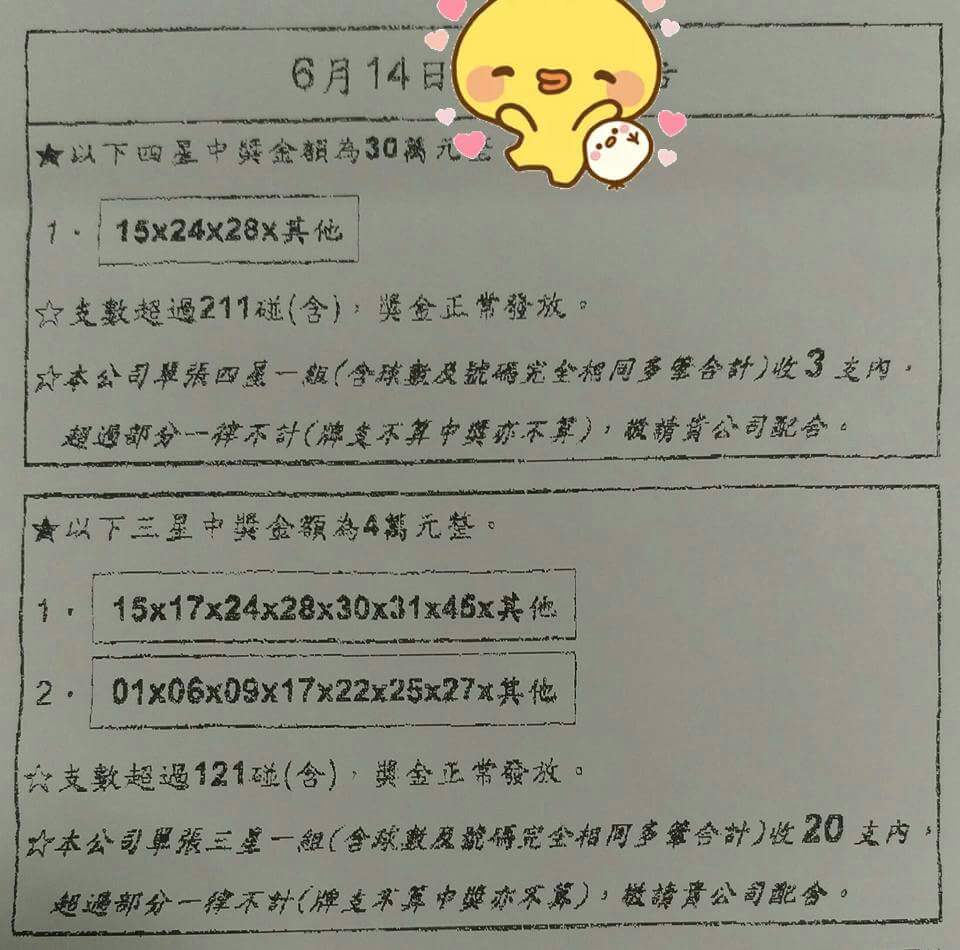 6月14日
★以下四星中獎金額為30萬元整
1. 15x24x28x其他
☆支數超過211碰(含)，獎金正常發放。
☆本公司單張四星一組(含球數及號碼完全相同多筆合計)收3支內，
超過部分一律不計(牌支不算中獎亦不算)，敬請貴公司配合。
★以下三星中獎金額為4萬元整。
1. 15x17x24x28x30x31x45x其他
2. 01x06x09x17x22x25x27x其他
☆支數超過121碰(含)，獎金正常發放。
☆本公司單張三星一組(含球數及號碼完全相同多筆合計)收20支內，
超過部分一律不計(牌支不算中獎亦不算)，敬請貴公司配合。